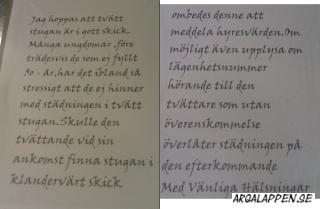 Jag hoppas att tvätt
stugan är i gott skick.
Många ungdomar ,före
trädesvis de som ej fyllt
50 - år,har det ibland så
stressigt att de ej hinner
med städningen i tvätt
stugan.Skulle den
tvättande vid sin
ankomst finna stugan i
klandervärt skick
ombedes denne att
meddela hyresvärden.Om
möjligt även upplysa om
lägenhetsnummer
hörande till den
tvättare som utan
överenskommelse
överlåter städningen på
den efterkommande
Med Vänliga Hälsningar
ARGALAPPEN.SE